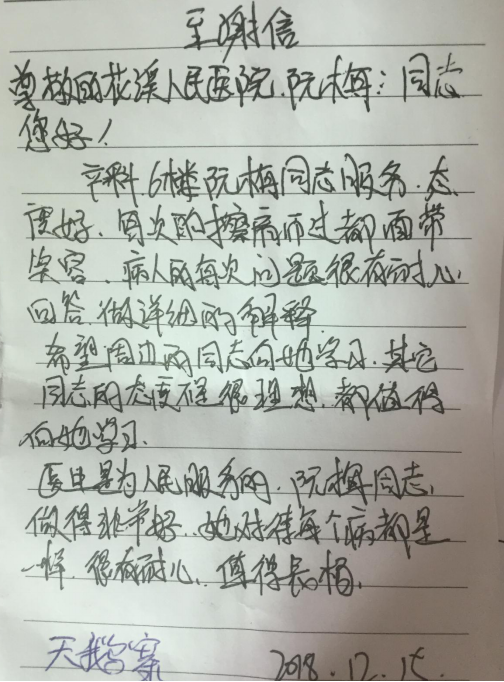 至谢信
尊敬的花溪人民医院.阮梅:同志
您好!
卒科6楼阮梅同志服务.态
度好.每次的擦肩而过都面带
笑容.病人的每次问题很有耐心
回答.做详细的解释.
希望周边的同志向她学习.其它
同志的态度不是很理想.都值得
向她学习.
医生是为人民服务的.阮梅同志.
做得非常好.她对待每个病都是
一样.很有耐心.值得表杨.
天鹅寨 2018.12.15.